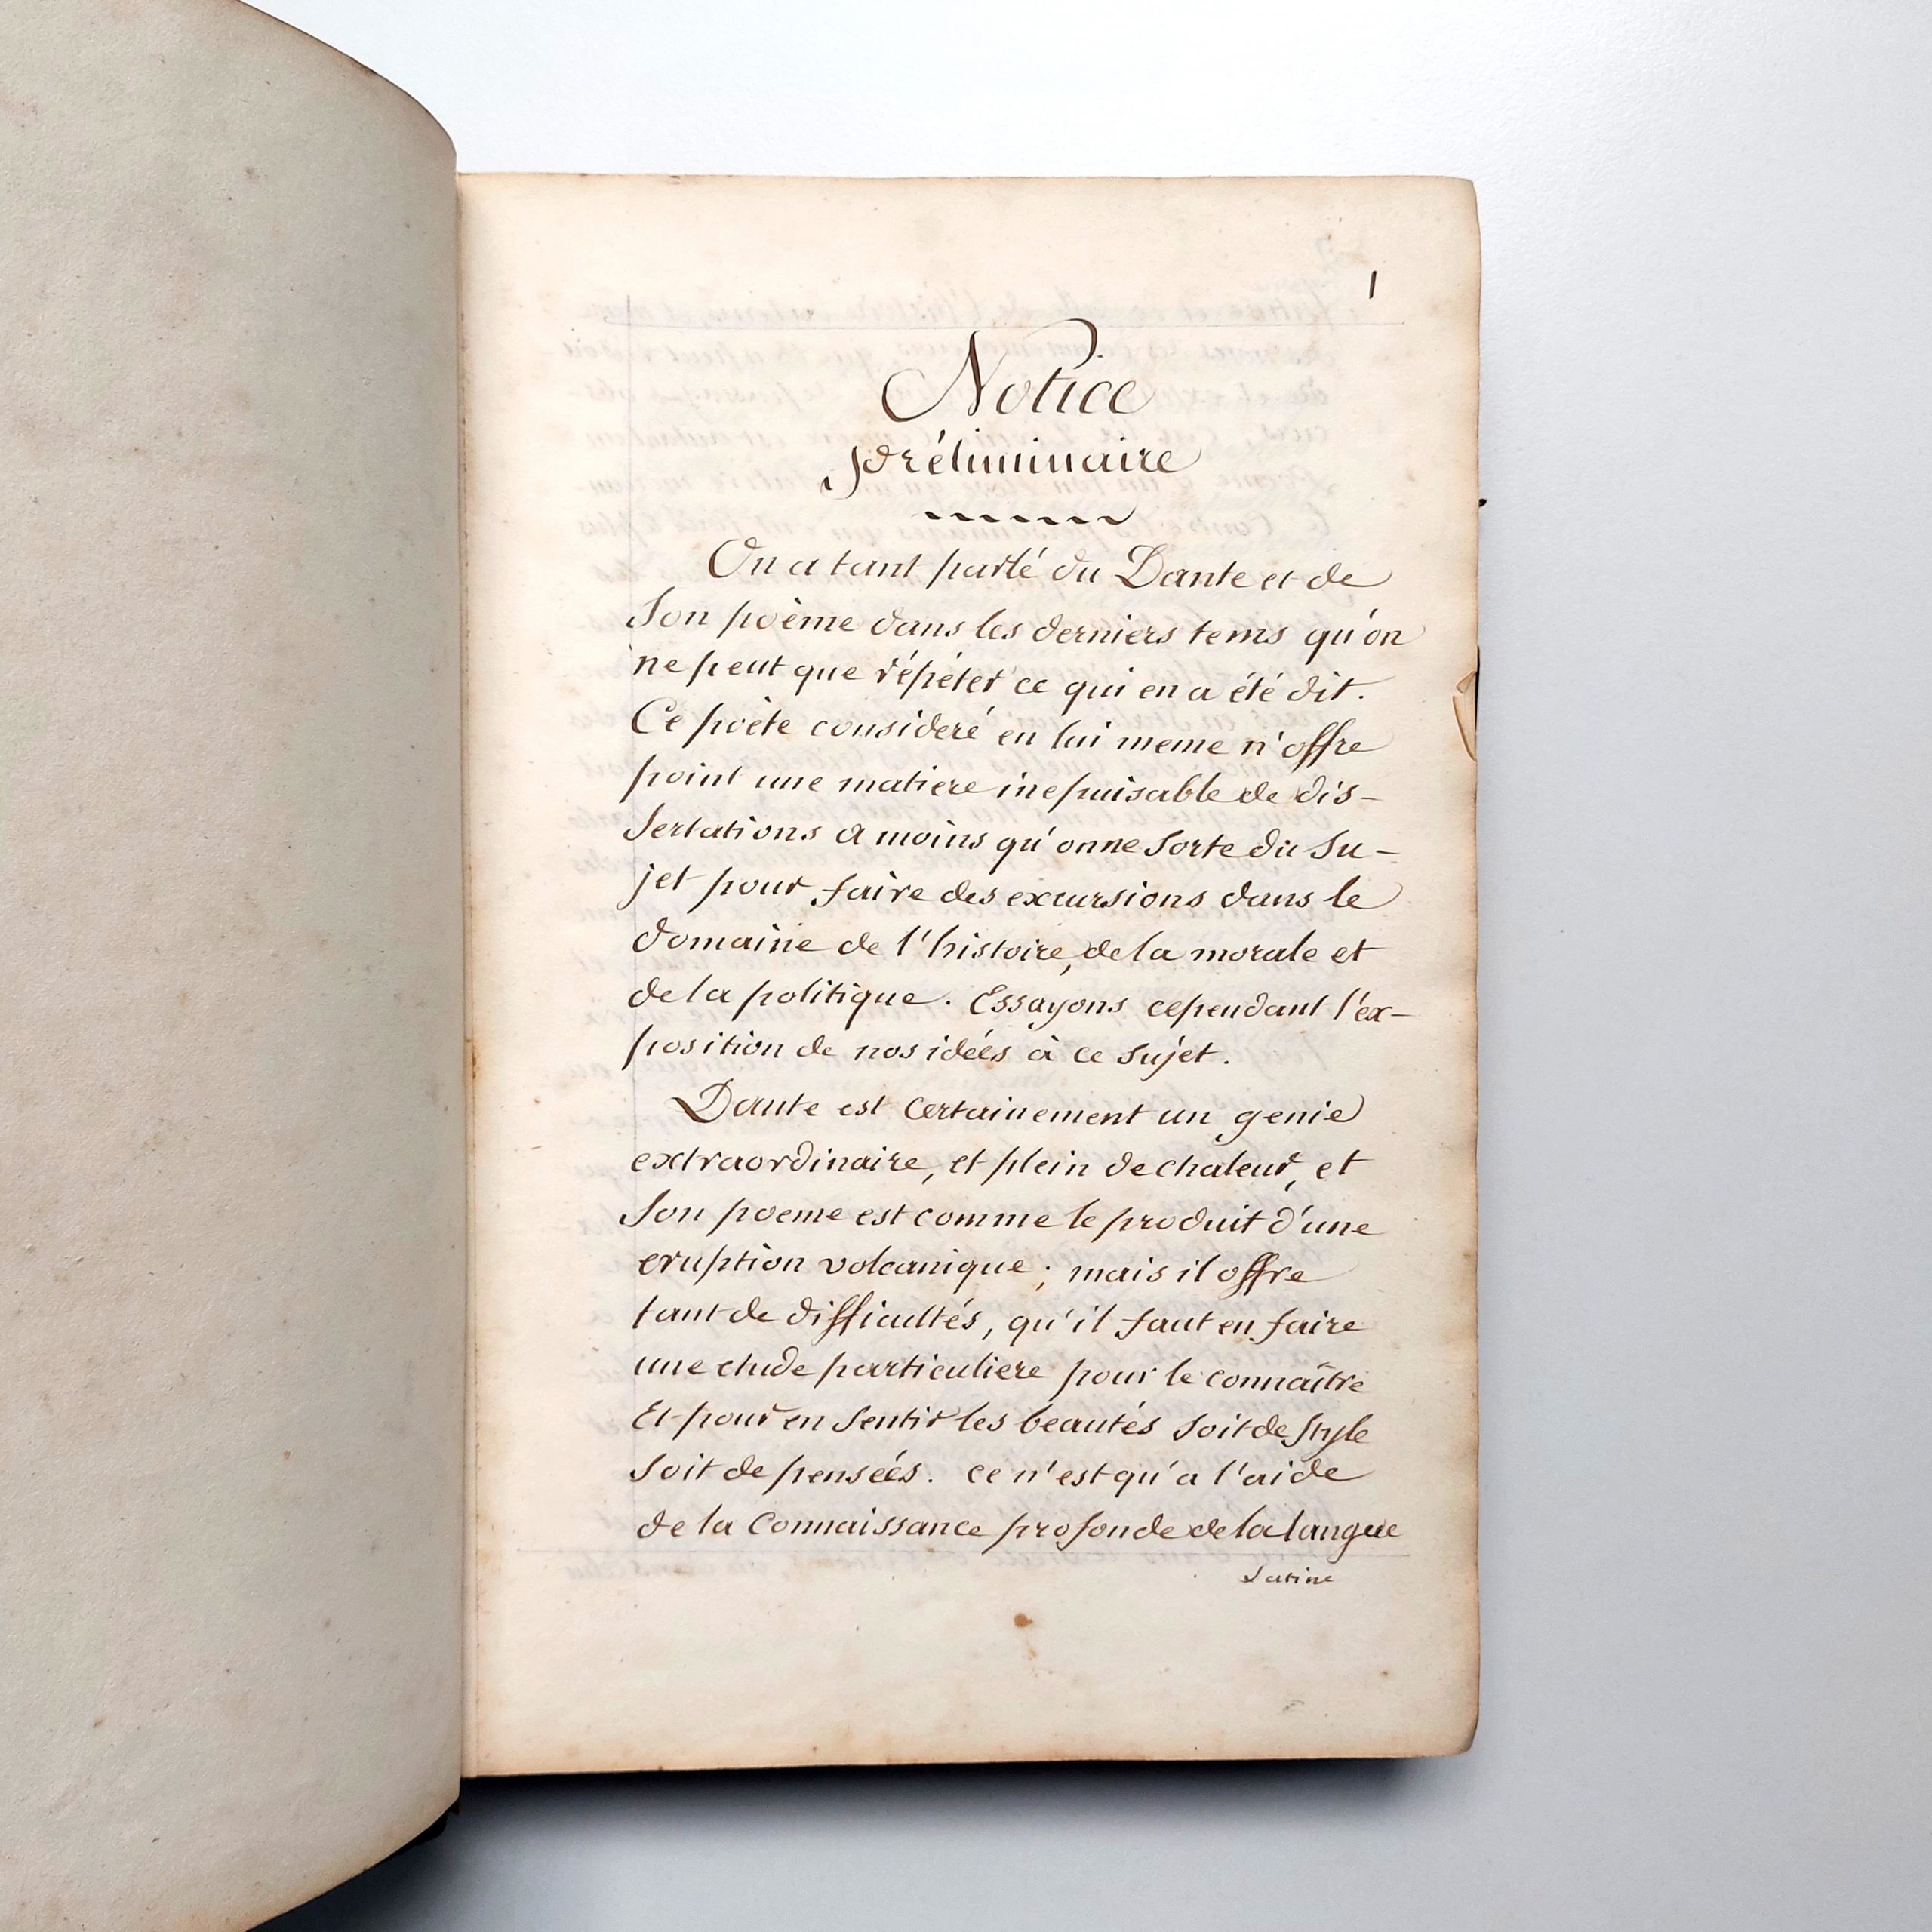 1
Notice
préliminaire
On a tant parlé du Dante et de
Son poème dans les derniers tems qu'on
ne peut que répéter ce qui en a été dit.
Ce poëte consideré en lui meme n'offre
point une matiere inepuisable de dis-
sertations a moins qu'on ne sorte du su-
jet pour faire des excursions dans le
domaine de l'histoire, de la morale et
de la politique. Essayons cependant l'ex-
position de nos idées à ce sujet.
Dante est certainement un genie
extraordinaire, et plein de chaleur, et
Son poeme est comme le produit d'une
eruption volcanique; mais il offre
tant de difficultés, qu'il faut en faire
une etude particuliere pour le connaître
Et pour en sentir les beautés soit de style
soit de pensées. ce n'est qu'a l'aide
de la Connaissance profonde de la langue
Latine